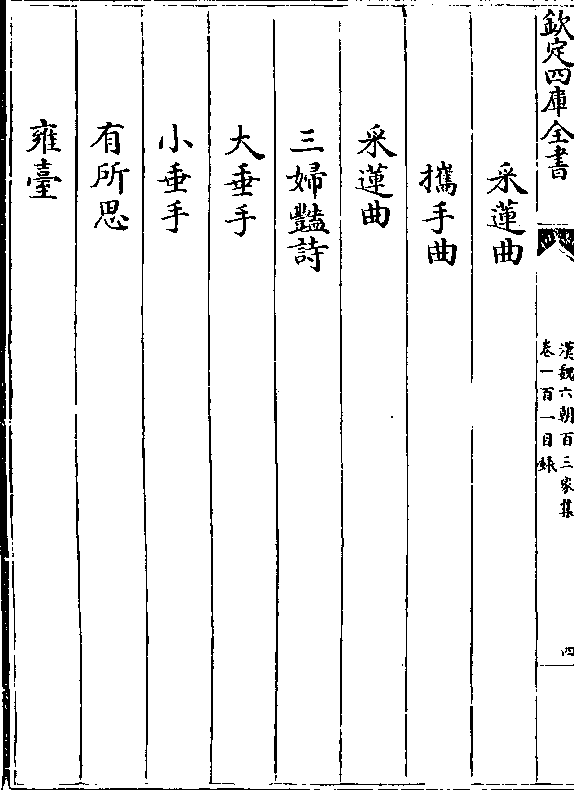 欽定四庫全書
漢魏六朝百三家集
卷一百一目錄
四
采蓮曲
攜手曲
采蓮曲
三婦豔詩
大垂手
小垂手
有所思
雍臺